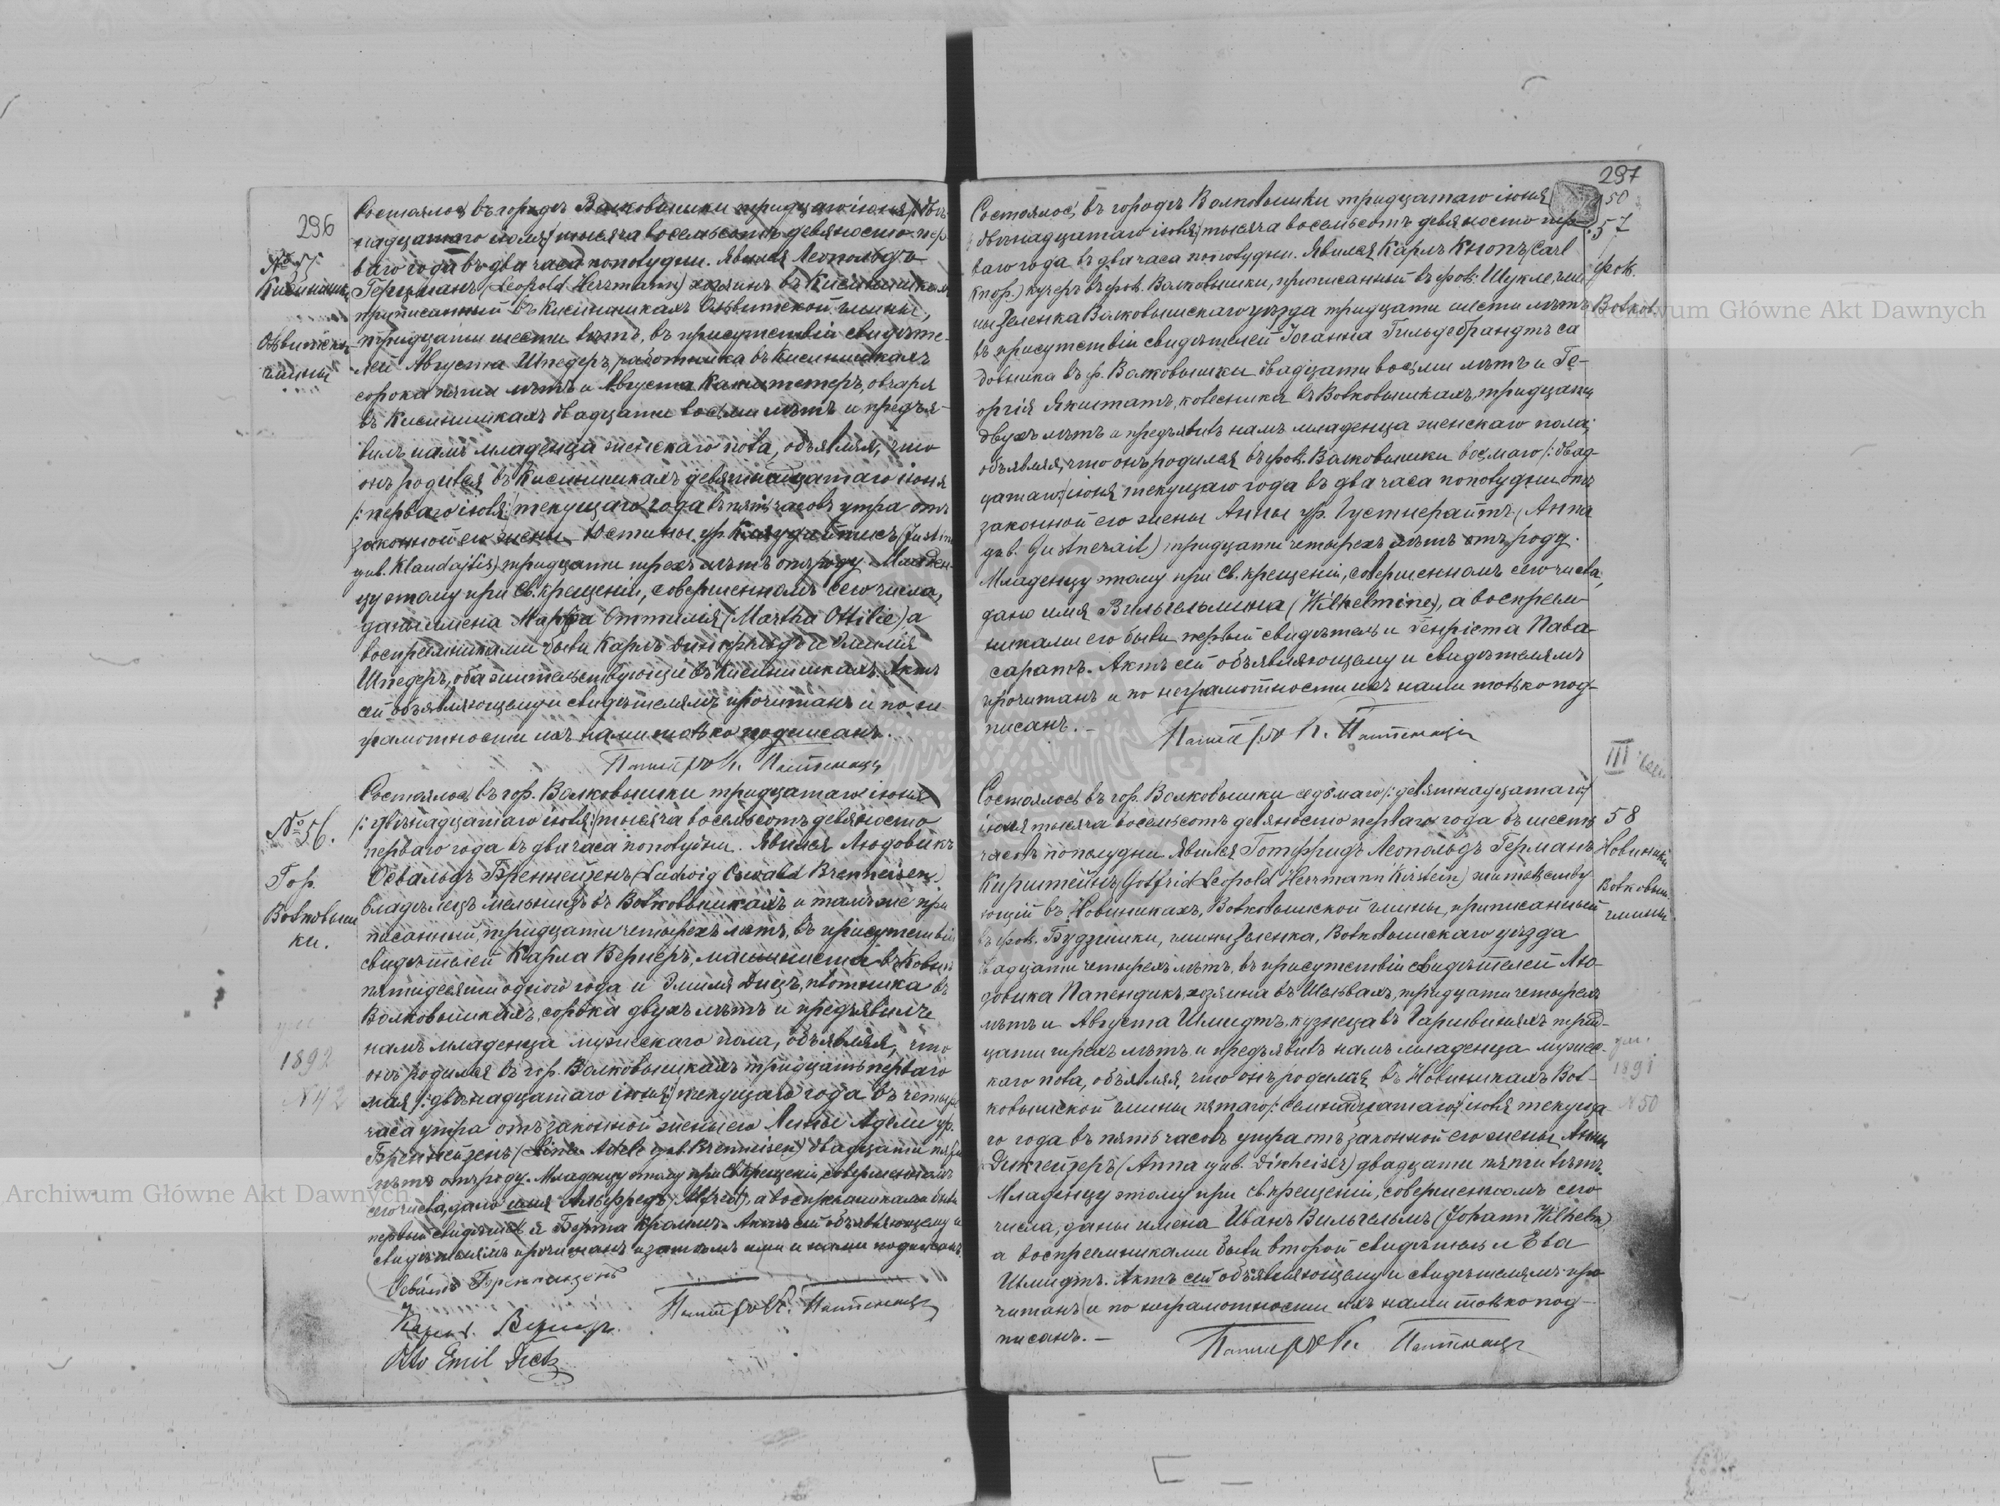 296
№ 55.
Кисинишки
Олвитской
гмины
Состоялось въ городѣ Волковышки тридцатаго іюня /: двѣ-
надцатаго іюля:/ тысяча восемьсотъ девяносто пер-
ваго года въ два часа пополудни. Явился Леопольдъ
Германъ (Leopold Herrmann) хозяинъ въ Кисинишкахъ
приписанный въ Кисинишкахъ Олвитской гмины,
тридцати шести лѣтъ, въ присутствіи свидѣте-
лей Августа Шнедеръ, работника въ Кисинишкахъ
сорока пяти лѣтъ и Августа овчаря
въ Кисинишкахъ двадцати восьми лѣтъ и предъя-
вилъ намъ младенца женскаго пола, объявляя, что
онъ родился въ Кисинишкахъ девятнадцатаго іюня
/: перваго іюля:/ текущаго года въ пять часовъ утра отъ
законной его жены Юстины ур. (Justine
geb. Klaudajtis) тридцати трехъ лѣтъ отъ роду. Младен-
цу этому при Св. крещеніи, совершенномъ сего числа,
даны имена Марфа Оттилія (Martha Ottilie) а
воспреемниками были Карлъ и Эмилія
Шнедеръ, оба жительствующіе въ Кисинишкахъ. Актъ
сей объявляющему и свидѣтелямъ прочитанъ и по не-
грамотности ихъ нами только подписанъ.
Пасторъ К.
№ 56.
Гор.
Волковыш
ки.
1892
N 42
Состоялось въ гор. Волковышки тридцатаго іюня
/: двѣнадцатаго іюля:/ тысяча восемьсотъ девяносто
перваго года въ два часа пополудни. Явился Людовикъ
Освальдъ Бреннейзенъ (Ludwig Oswald Brenneisen)
владѣлецъ мельницъ въ Волковышкахъ и тамъ же при
писанный, тридцати четырехъ лѣтъ, въ присутствіи
свидѣтелей Карла Вернеръ, машиниста въ
пятидесяти одного года и Эмиля Дицъ, плотника въ
Волковышкахъ, сорока двухъ лѣтъ и предъявилъ
намъ младенца мужескаго пола, объявляя, что
онъ родился въ гор. Волковышкахъ тридцать перваго
мая /: двѣнадцатаго іюня:/ текущаго года въ четыре
часа утра отъ законной жены его Лины Адели ур.
Бреннейзенъ (Line Adele geb. Brenneisen) двадцати пяти
лѣтъ отъ роду. Младенцу этому при Св. крещеніи, совершенномъ
сего числа, дано имя Альфредъ (Alfred), а воспреемниками были
первый свидѣтель и Берта Актъ сей объявляющему и
свидѣтелямъ прочитанъ и затѣмъ ими и нами подписанъ.
Освальдъ Бреннейзенъ
Карлъ Вернеръ.
Пасторъ К.
Otto Emil Dietz
297
50
57
фол.
Волков.
Состоялось въ городѣ Волковышки тридцатаго іюня /:
двѣнадцатаго іюля:/ тысяча восемьсотъ девяносто пер-
ваго года въ два часа пополудни. Явился Карлъ Кнопъ (Carl
Knop.) кучеръ въ фол. Волковышки, приписанный въ фол. гми
ны Зеленка Волковышскаго уѣзда тридцати шести лѣтъ
въ присутствіи свидѣтелей Іоганна Гильдебрандтъ са
довника въ ф. Волковышки двадцати восьми лѣтъ и Ге-
оргія колесника въ Волковышкахъ, тридцати
двухъ лѣтъ и предъявилъ намъ младенца женскаго пола,
объявляя, что онъ родился въ фол. Волковышки восьмаго /: двад-
цатаго:/ іюня текущаго года въ два часа пополудни отъ
законной его жены Анны ур. Густнерайтъ (Anna
geb. Gustnerait) тридцати четырехъ лѣтъ отъ роду.
Младенцу этому при Св. крещеніи, совершенномъ сего числа,
дано имя Вильгельмина (Wilhelmine), а воспреем-
никами его были первый свидѣтель и Генріета Пава-
саратъ. Актъ сей объявляющему и свидѣтелямъ
прочитанъ и по неграмотности ихъ нами только под-
писанъ. –
Пасторъ К.
III
58
Новиники
Волковыш.
гмины
1891
N 50
Состоялось въ гор. Волковышки седьмаго /: девятнадцатаго:/
іюля тысяча восемьсотъ девяносто перваго года въ шесть
часовъ пополудни. Явился Готфридъ Леопольдъ Германъ
Кирштейнъ (Gotfrid Leopold Herrmann Kirstein) жительству
ющій въ Новиникахъ, Волковышской гмины, приписанный
въ фол. Будзишки, гмины Зеленка, Волковышскаго уѣзда
двадцати четырехъ лѣтъ, въ присутствіи свидѣтелей Лю-
довика Папендикъ, хозяина въ тридцати четырехъ
лѣтъ и Августа Шмидтъ, кузнеца въ трид-
цати трехъ лѣтъ и предъявилъ намъ младенца мужес-
каго пола, объявляя, что онъ родился въ Новиникахъ Вол-
ковышской гмины пятаго /: семнадцатаго:/ іюля текуща-
го года въ пять часовъ утра отъ законной его жены Анны
Дикгейзеръ (Anna geb. Dikheiser) двадцати пяти лѣтъ.
Младенцу этому при св. крещеніи, совершенномъ сего
числа, даны имена Иванъ Вильгельмъ (Johann Wilhelm)
а воспреемниками были второй свидѣтель и Ева
Шмидтъ. Актъ сей объявляющему и свидѣтелямъ про
читанъ и по неграмотности ихъ нами только под-
писанъ. –
Пасторъ К.
Archiwum Główne Akt Dawnych
Archiwum Główne Akt Dawnych